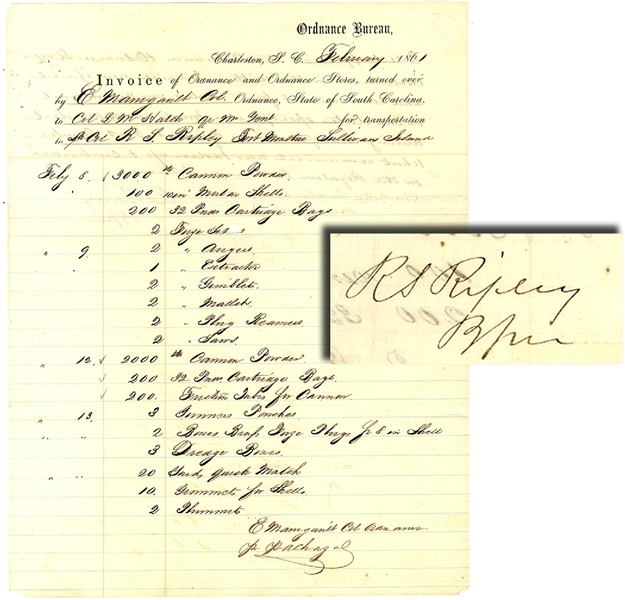 Ordnance Bureau,
Charleston, S. C. February 1861
Invoice of Ordnance and Ordnance Stores, turned over
by E Manigault Col. Ordnance, State of South Carolina,
to Col L M Hatch Qr Mr Genl for transportation
to Col R. S. Ripley Fort Moultrie Sullivan Island
Feby 8. 3000 lb Cannon Powder.
100 10 in Mortar Shells.
200 32 Pndr Cartridge Bags
2 Fuze
" 9. 2 " Augers.
1 " Extractor
2 " Gimblets.
2 " Mallets.
2 " Plug Reamers
2 " Saws.
" 12. 2000 lb Cannon Powder
200 32 Pndr Cartridge Bags.
200. Friction Tubes for Cannon.
" 13. 3 Gunners Pouches
" " 2 Boxes Brass Fuze Plugs for 8 in Shell
3 Dredge Boxes.
" " 20 Yards, Quick Match
10. Grummets for Shells.
2 Plummets
E Manigault Col Ordnance
R S Ripley